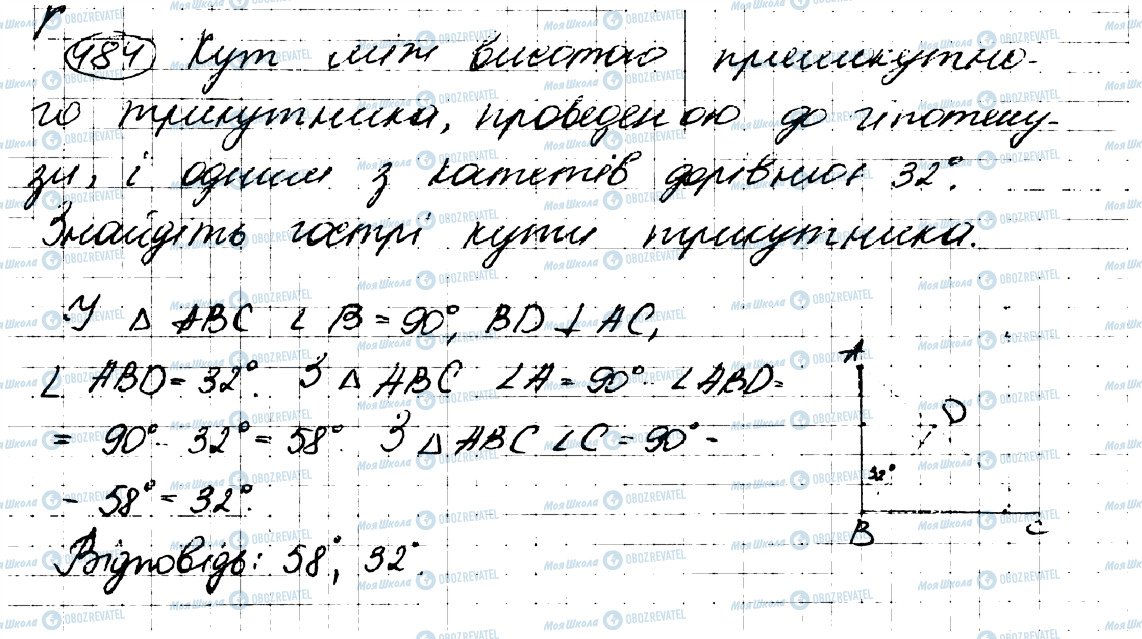 484 Кут між висотою прямокутно-
го трикутника, проведеною до гіпотену-
зи, і одним з катетів дорівнює 32°.
Знайдіть гострі кути трикутника.
У △ ABC ∠ B = 90°, BD ⊥ AC,
∠ ABD = 32°. З △ ABC ∠A = 90° - ∠ABD =
= 90° - 32° = 58°. З △ ABC ∠C = 90° -
- 58° = 32°.
Відповідь: 58°, 32°.
A
D
32°
B C